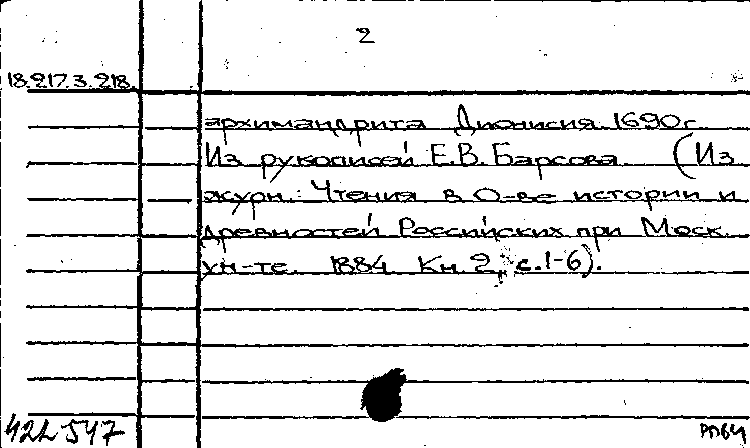 2
18.217.3.218.
архимандрита Дионисия 1690г.
Из рукописей Е.В. Барсова. (Из
журн.: Чтения в О-ве истории и
древностей Российских при Моск.
ун-те. 1884. Кн. 2, с.1-6).
42L547
РП64